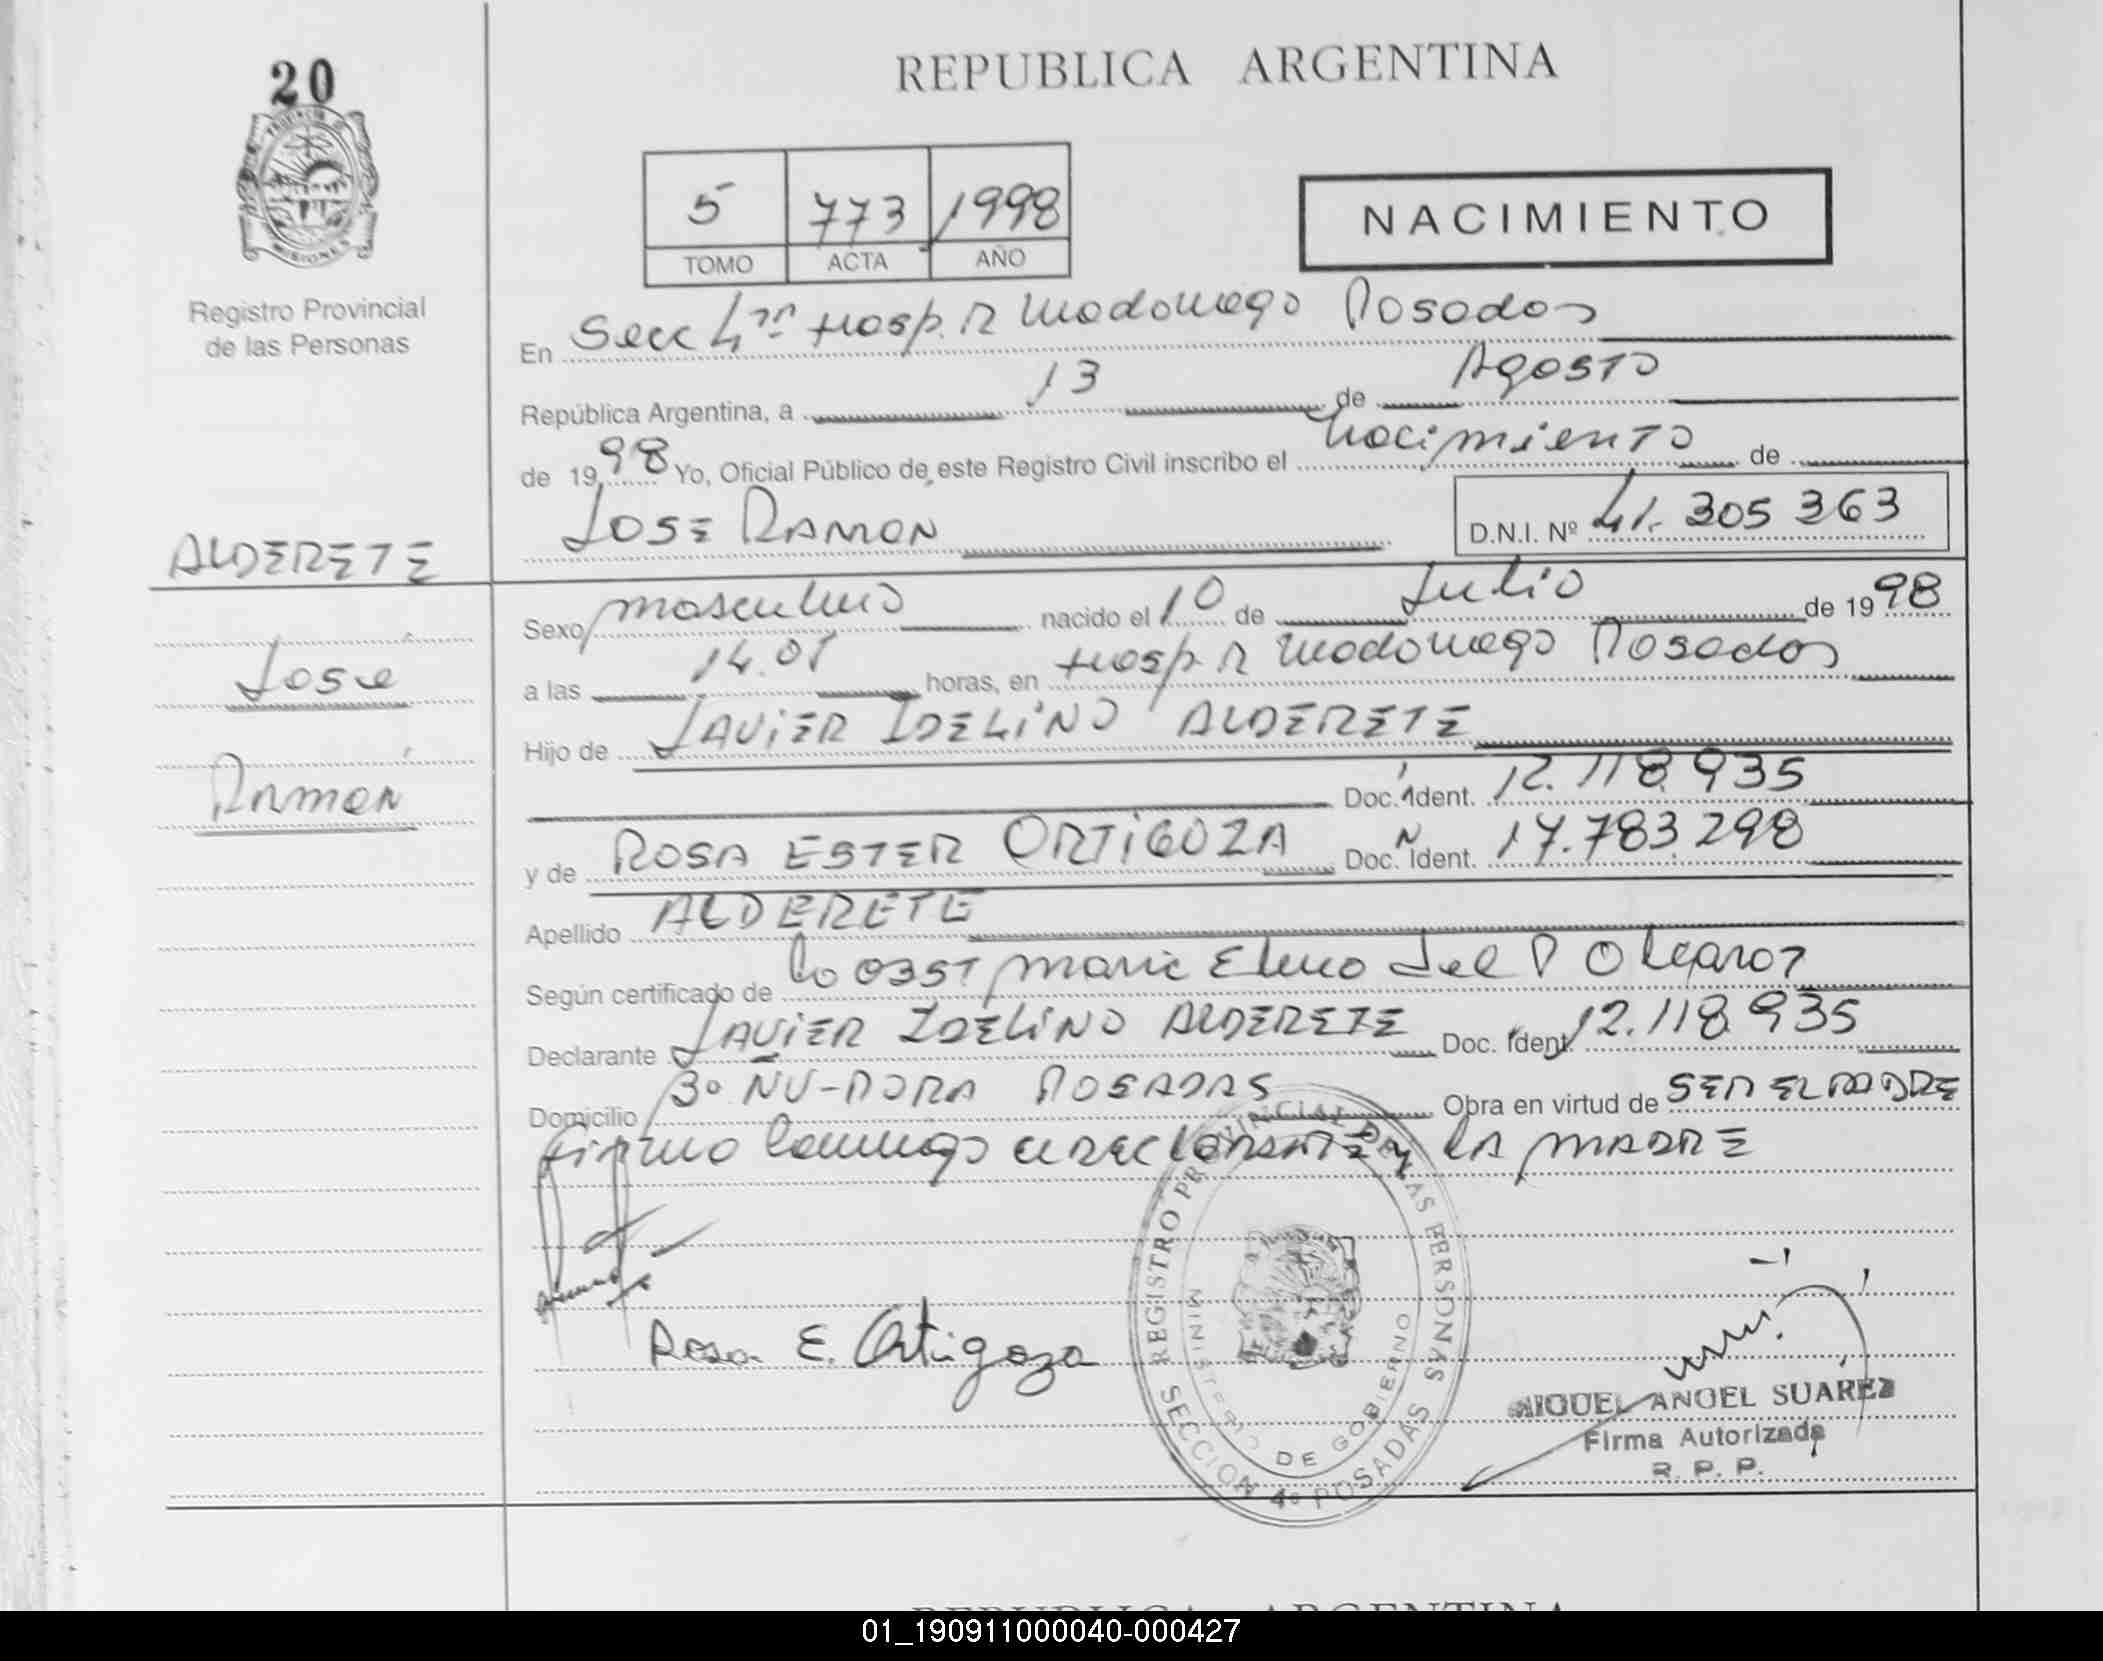 20
PROVINCIA DE
MISIONES
Registro Provincial
de las Personas
REPUBLICA ARGENTINA
5 773 1998
TOMO ACTA AÑO
NACIMIENTO
En Secc 4ta Hosp. R Madariaga Posadas
República Argentina, a 13 de Agosto
de 1998 Yo, Oficial Público de este Registro Civil inscribo el nacimiento de
JOSE RAMON D.N.I. Nº 41.305 363
ALDERETE
José
Ramón
Sexo masculino nacido el 10 de Julio de 1998
a las 14.05 horas, en Hosp. R Madariaga Posadas
Hijo de JAVIER IDELINO ALDERETE
Doc. Ident. 12.118.935
y de ROSA ESTER ORTIGOZA Doc. Ident. 17.783.298
Apellido ALDERETE
Según certificado de la OBST Marie Elena del P
Declarante JAVIER IDELINO ALDERETE Doc. Ident. 12.118.935
Domicilio POSADAS Obra en virtud de SER EL PADRE
Firma conmigo el DECLARANTE y LA MADRE
Rosa E. Ortigoza
REGISTRO PROVINCIAL DE LAS PERSONAS
MINISTERIO DE GOBIERNO
SECCION 4º POSADAS
MIGUEL ANGEL SUAREZ
Firma Autorizada
R. P. P.
REPUBLICA ARGENTINA
01_190911000040-000427